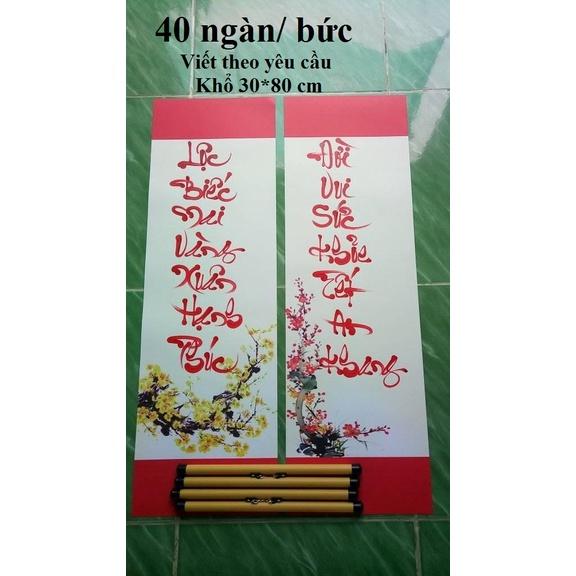 40 ngàn/ bức
Viết theo yêu cầu
Khổ 30*80 cm
Lộc
Biếc
Mai
Vàng
Xuân
Hạnh
Phúc
Đời
Vui
Sức
Khỏe
Tết
An
Khang